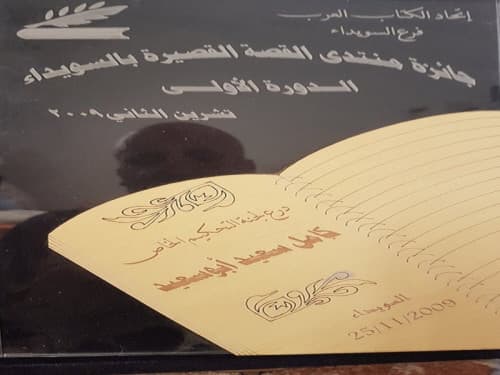 إتحاد الكتاب العرب
فرع السويداء
جائزة منتدى القصة القصيرة بالسويداء
الدورة الأولى
تشرين الثاني ٢٠٠٩
درع لجنة التحكيم الخاص
كامل سعيد أبو سعيد
السويداء
25/11/2009